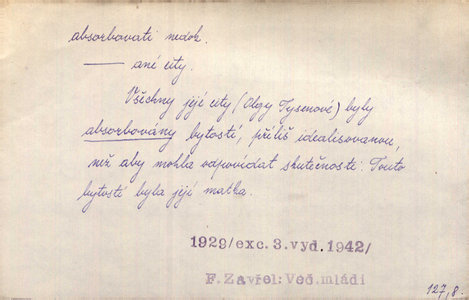 absorbovati nedok.
—— ané city.
Všechny její city (Olgy Tysenové) byly
absorbovány bytostí, příliš idealisovanou,
než aby mohla odpovídat skutečnosti. Touto
bytostí byla její matka.
1929/exc.3.vyd.1942/
F.Zavřel:Več.mládi
127,8.